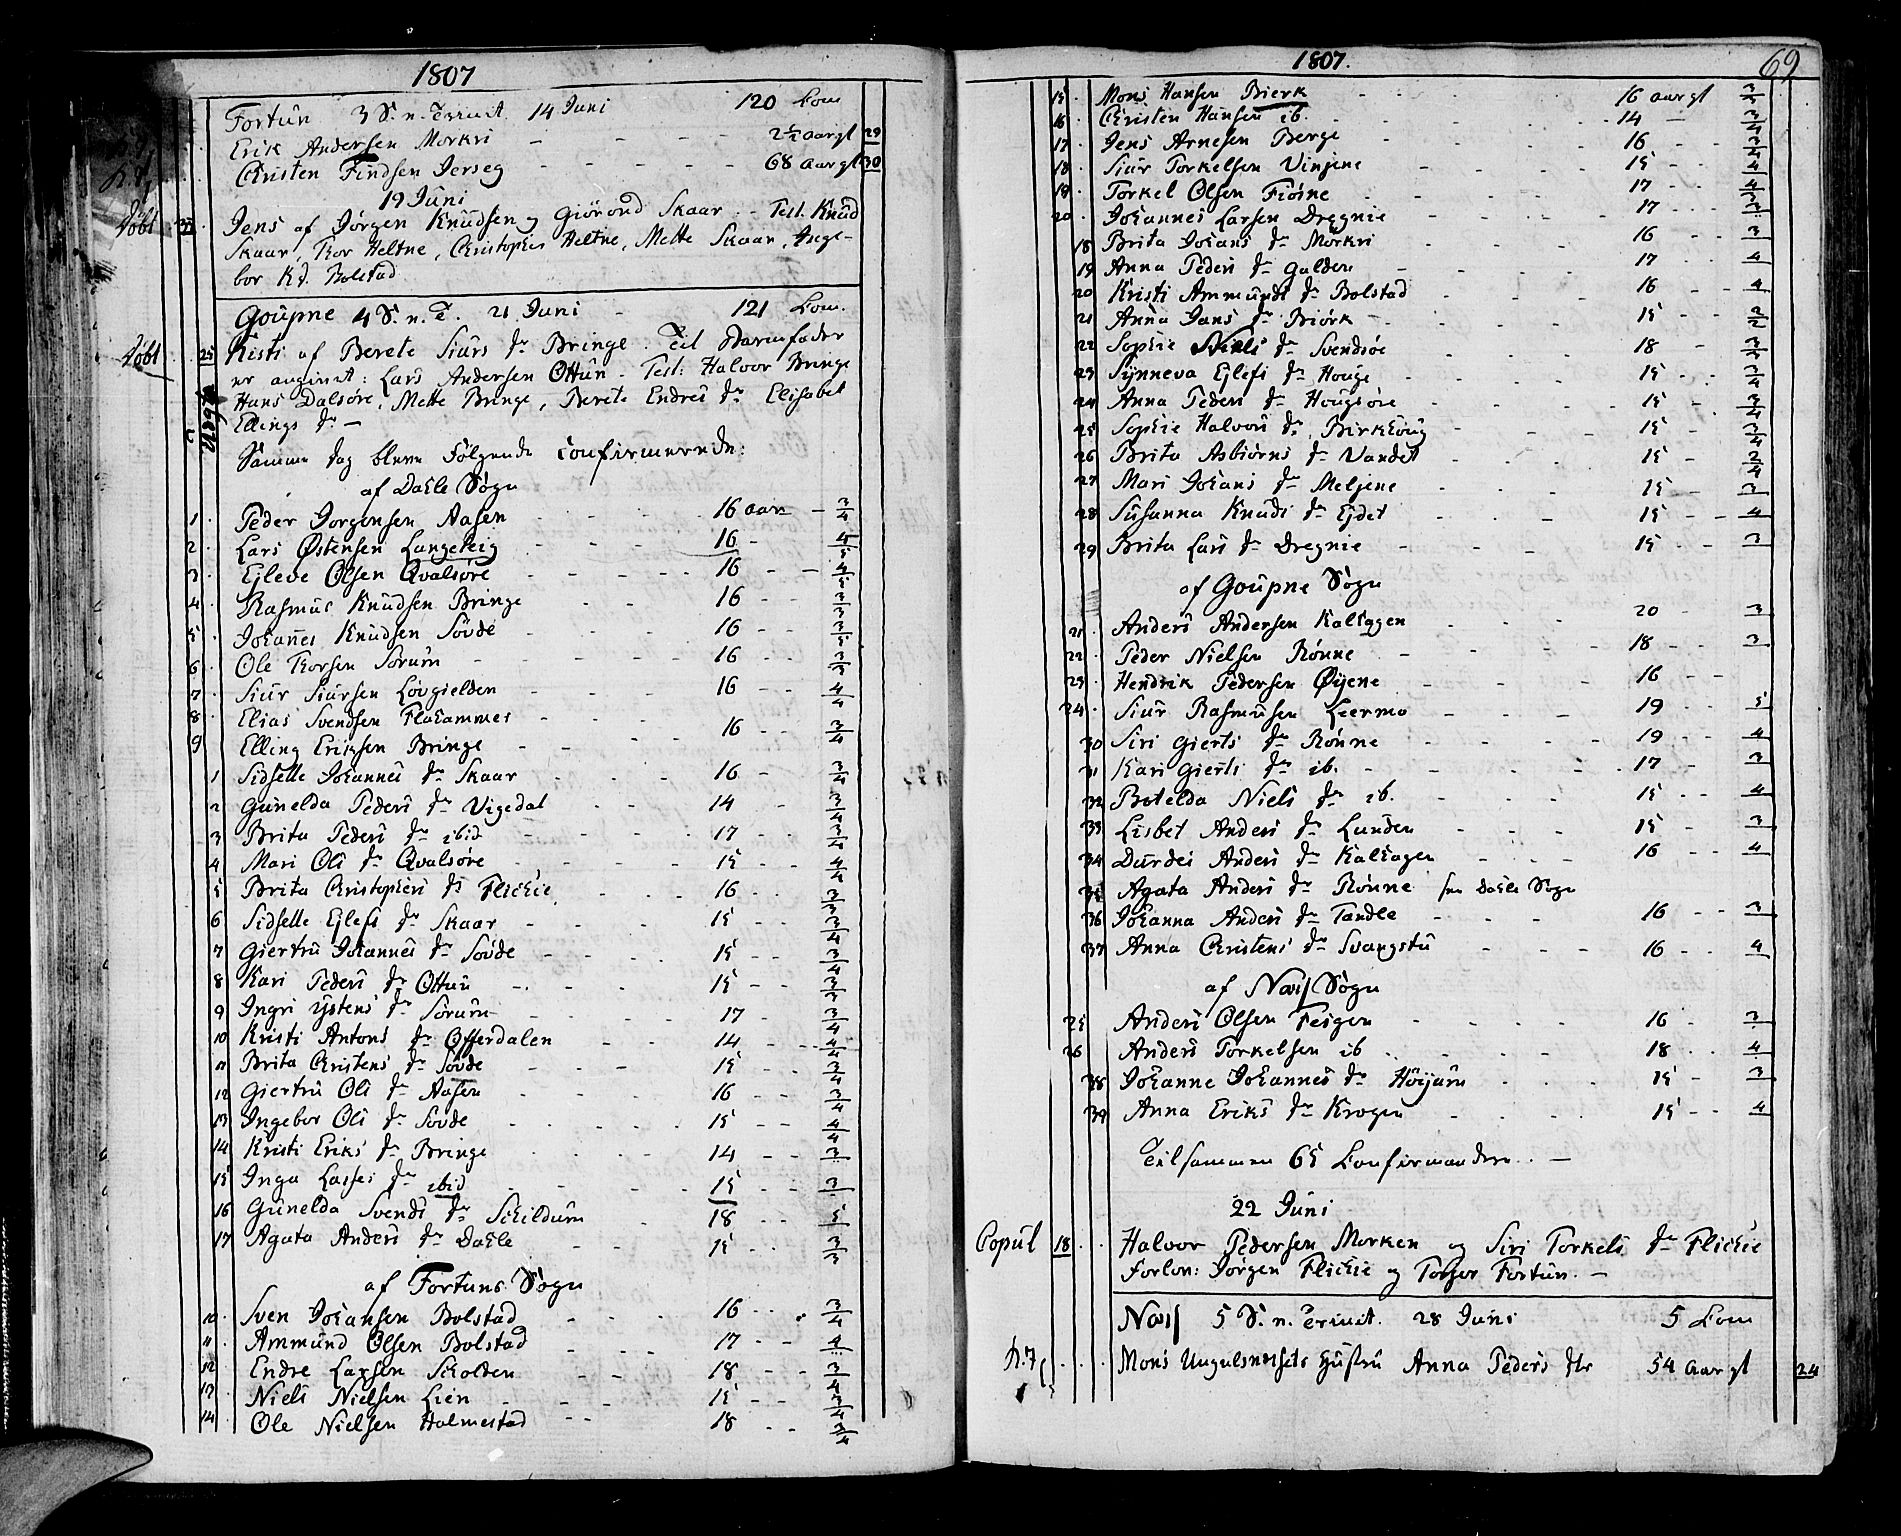 1807
Fortun 3 S. n. Trinit. 14 Juni 120 Com
Erik Andersen Morkri - - - 2 1/2 aargl 29
Christen Findsen Jerseg - - - 68 aargl 30
19 Juni
Døbt Jens af Jørgen Knudsen og Giørond Skaar - Test. Knud
Skaar, Thor Heltne, Christopher Heltne, Mette Skaar, Inge-
bor Kd. Bolstad
Goupne 4 S. n. T. 21 Juni - 121 Com.
Døbt 25 Kisti af Berete Siurs dr Bringe. Til Barnefader
er angivet: Lars Andersen Ottun - Test: Halvor Bringe
Hans Dalsøre, Mette Bringe, Berete Endres dr Elisabet
Ellings dr -
Samme dag bleve Følgende Confirmerede:
af Dahle Sogn
1. Peder Jorgensen Aasen 16 aar - 3/4
2. Lars Østensen Langeteig 16 - 4/5
3. Ejleve Olsen Qvalsøre 16 - - 4/5
4. Rasmus Knudsen Bringe 16 - - 3/3
5. Johannes Knudsen Sovde 16 - - 3/5
6. Ole Thorsen Sorum 16 - - 3/3
7. Siur Siursen Lovgielden 16 - - 4/4
8. Elias Svendsen Flahammer -
9 Elling Eriksen Bringe 16 - - 3/4
1 Sidselle Johannes dr Skaar 16 - 3/4
2 Gunelda Peders dr Vigedal 14 - 3/4
3 Brita Peders dr ibid 17 - - 3/4
4 Mari Ols dr Qvalsøre 15 - - 4/4
5 Brita Christophers dr Flichie 16 - - 3/3
6 Sidselle Ejlefs dr Skaar 15 - - 3/4
7 Giertru Johannes dr Sovde 15 - - 3/4
8 Kari Peders dr Ottun 15 - - 3/3
9 Ingri Ystens dr Sorum 17 - 3/4
10 Kristi Antons dr Offerdalen 14 - - 4/4
11 Brita Christens dr Sovde 15 - - 3/4
12 Giertru Ols dr Aasen 16 - - 3/4
13 Ingebor Ols dr Sovde 15 - - 4/4
14 Kristi Eriks dr Bringe 14 - - 3
15 Inga Lasses dr ibid 15 - - 3
16 Gunelda Svends dr Schildum 18 - - 5
17 Agata Anders dr Dahle 15 - - 3/3
af Fortuns Sogn
10. Sven Johansen Bolstad 16 - - 3/4
11. Ammund Olsen Bolstad 17 - - 4
12. Endre Larsen Skolden 18 - - 3/4
13. Niels Nielsen Lien 15 - - 3/4
14. Ole Nielsen Holmestad 18 - - 3/4
1807.
69
15. Mons Hansen Bierk 16 aargl 3/3
16. Christen Hansen ib. 14 - 3/4
17. Jens Arnesen Berge 16 - - 3/4
18. Siur Torkelsen Vinjene 15 - - 4
19. Torkel Olsen Fiøsne 17 - - 4
20. Johannes Larsen Dregnie 17 - - 3
18 Brita Johans dr Morkri 16 - - 3
19 Anna Peders dr Galden 17 - - 4
20 Kristi Ammunds dr Bolstad 16 - - 4
21 Anna Jans dr Biørk 15 - - 2/2
22 Sophie Niels dr Svendsøe 18 - 3/3
23 Synneva Ejlefs dr Houge 15 - - 3/4
24 Anna Peders dr Hougsøre 15 - - 3/4
25 Sophie Halvors dr Birkhoug 15 - 3/4
26 Brita Asbiørns dr Vandet 15 - 2/4
27 Mari Johans dr Meljene 15 - 3
28 Susanna Knuds dr Ejdet 15 - - 4
29 Brita Lars dr Dregnie 15 - - 3
af Goupne Sogn
21. Anders Andersen Kalhagen 20 - 3
22. Peder Nielsen Rønne 18 - - 3
23. Hendrik Pedersen Øyene 16 - -
24. Siur Rasmusen Leermo 19 - - 5
30 Siri Gierts dr Rønne 19 - - 4
31 Kari Gierts dr ib. 17 - 3
32 Botelda Niels dr ib. 15 - - 4
33 Lisbet Anders dr Lunden 15 - 3
34 Durdei Anders dr Kalhagen 16 - - 4
35 Agata Anders dr Rønne see Dahle Sogn
36 Johanna Anders dr Tandle 16 - - 3
37 Anna Christens dr Svangstu 16 - - 4
af Næs Sogn
25 Anders Olsen Feigen 16 - 3
26 Anders Torkelsen ib 18 - - 4
38 Johanne Johannes dr Høyum 15 - 3
39 Anna Eriks dr Krogen 15 - - 4
Tilsammen 65 Confirmander. -
22 Juni
Copul 18. Halvor Pedersen Morken og Siri Torkels dr Flichie
Forlov: Jørgen Flichie og Torger Fortun. -
Næs 5 S. n. Trinit. 28 Juni 5 Com
Mons Ungulsnæsets Hustru Anna Peders dtr 54 aargl 24